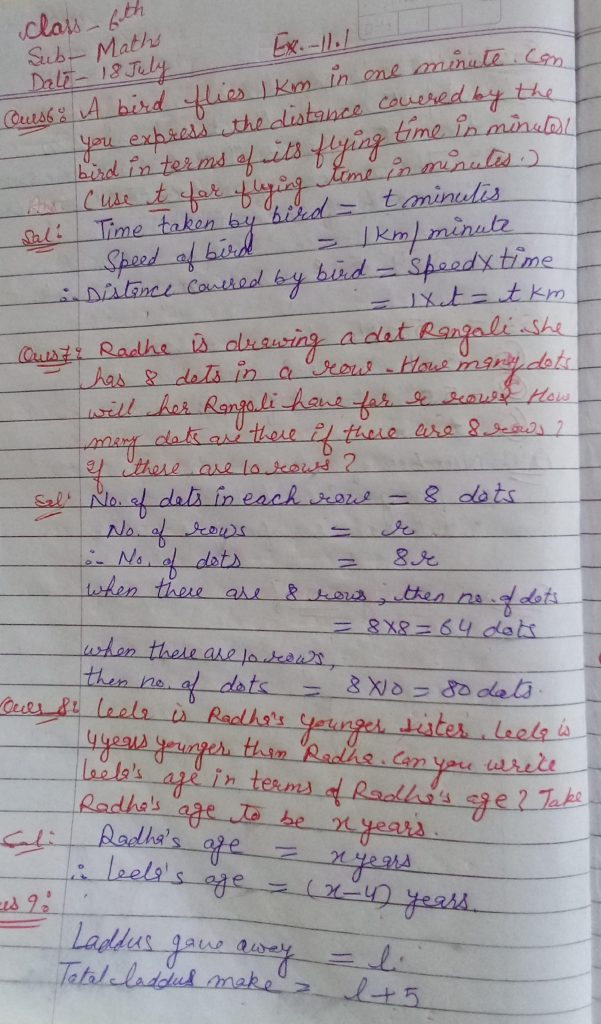 Class - 6th
Sub - Maths
Date - 18 July
Ex. - 11.1
Ques6: A bird flies 1 Km in one minute. Can
you express the distance covered by the
bird in terms of its flying time in minutes?
(use t for flying time in minutes.)
Sol: Time taken by bird = t minutes
Speed of bird = 1 Km/minute
∴ Distance Covered by bird = Speed x time
= 1 x t = t Km
Ques7: Radha is drawing a dot Rangoli. She
has 8 dots in a row. How many dots
will her Rangoli have for r rows? How
many dots are there if there are 8 rows?
If there are 10 rows?
Sol: No. of dots in each row = 8 dots
No. of rows = r
∴ No. of dots = 8r
when there are 8 rows, then no. of dots
= 8x8 = 64 dots
when there are 10 rows,
then no. of dots = 8x10 = 80 dots.
Ques 8: Leela is Radha's younger sister. Leela is
4 years younger than Radha. Can you write
Leela's age in terms of Radha's age? Take
Radha's age to be x years.
Sol: Radha's age = x years
∴ Leela's age = (x-4) years.
es 9:
Laddus gave away = l.
Total laddus make = l+5